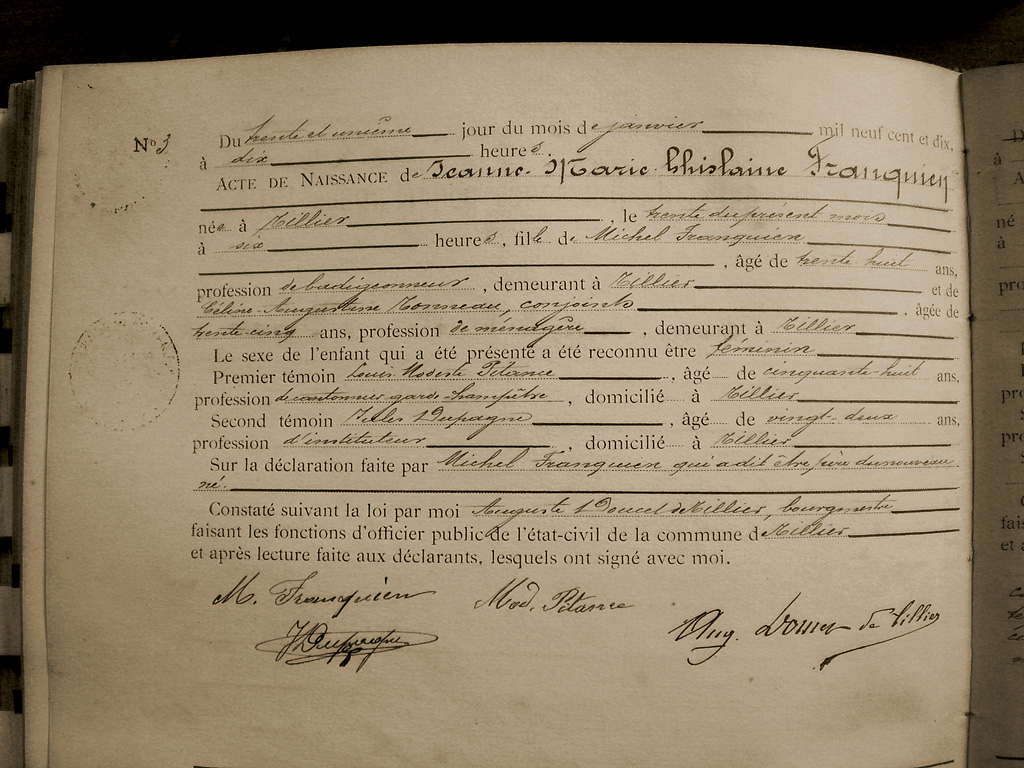 N° 3
Du trente et unième jour du mois de janvier mil neuf cent et dix,
à dix heures.
ACTE DE NAISSANCE de Jeanne Marie Ghislaine Franquien
née à Tillier, le trente du présent mois
à six heures, fille de Michel Franquien
, âgé de trente huit ans,
profession de badigeonneur, demeurant à Tillier et de
Céline Augustine Tonneau, conjoints, âgée de
trente cinq ans, profession de ménagère, demeurant à Tillier
Le sexe de l'enfant qui a été présenté a été reconnu être féminin
Premier témoin Louis Modeste Pitance, âgé de cinquante-huit ans,
profession de cantonnier garde-champêtre, domicilié à Tillier
Second témoin Jules Dupagne, âgé de vingt-deux ans,
profession d'instituteur, domicilié à Tillier
Sur la déclaration faite par Michel Franquien qui a dit être père du nouveau
né.
Constaté suivant la loi par moi Auguste Doucet de Tillier, bourgmestre
faisant les fonctions d'officier public de l'état-civil de la commune de Tillier
et après lecture faite aux déclarants, lesquels ont signé avec moi.
M. Franquien Mod. Pitance
JDupagne Aug. Doucet de Tillier